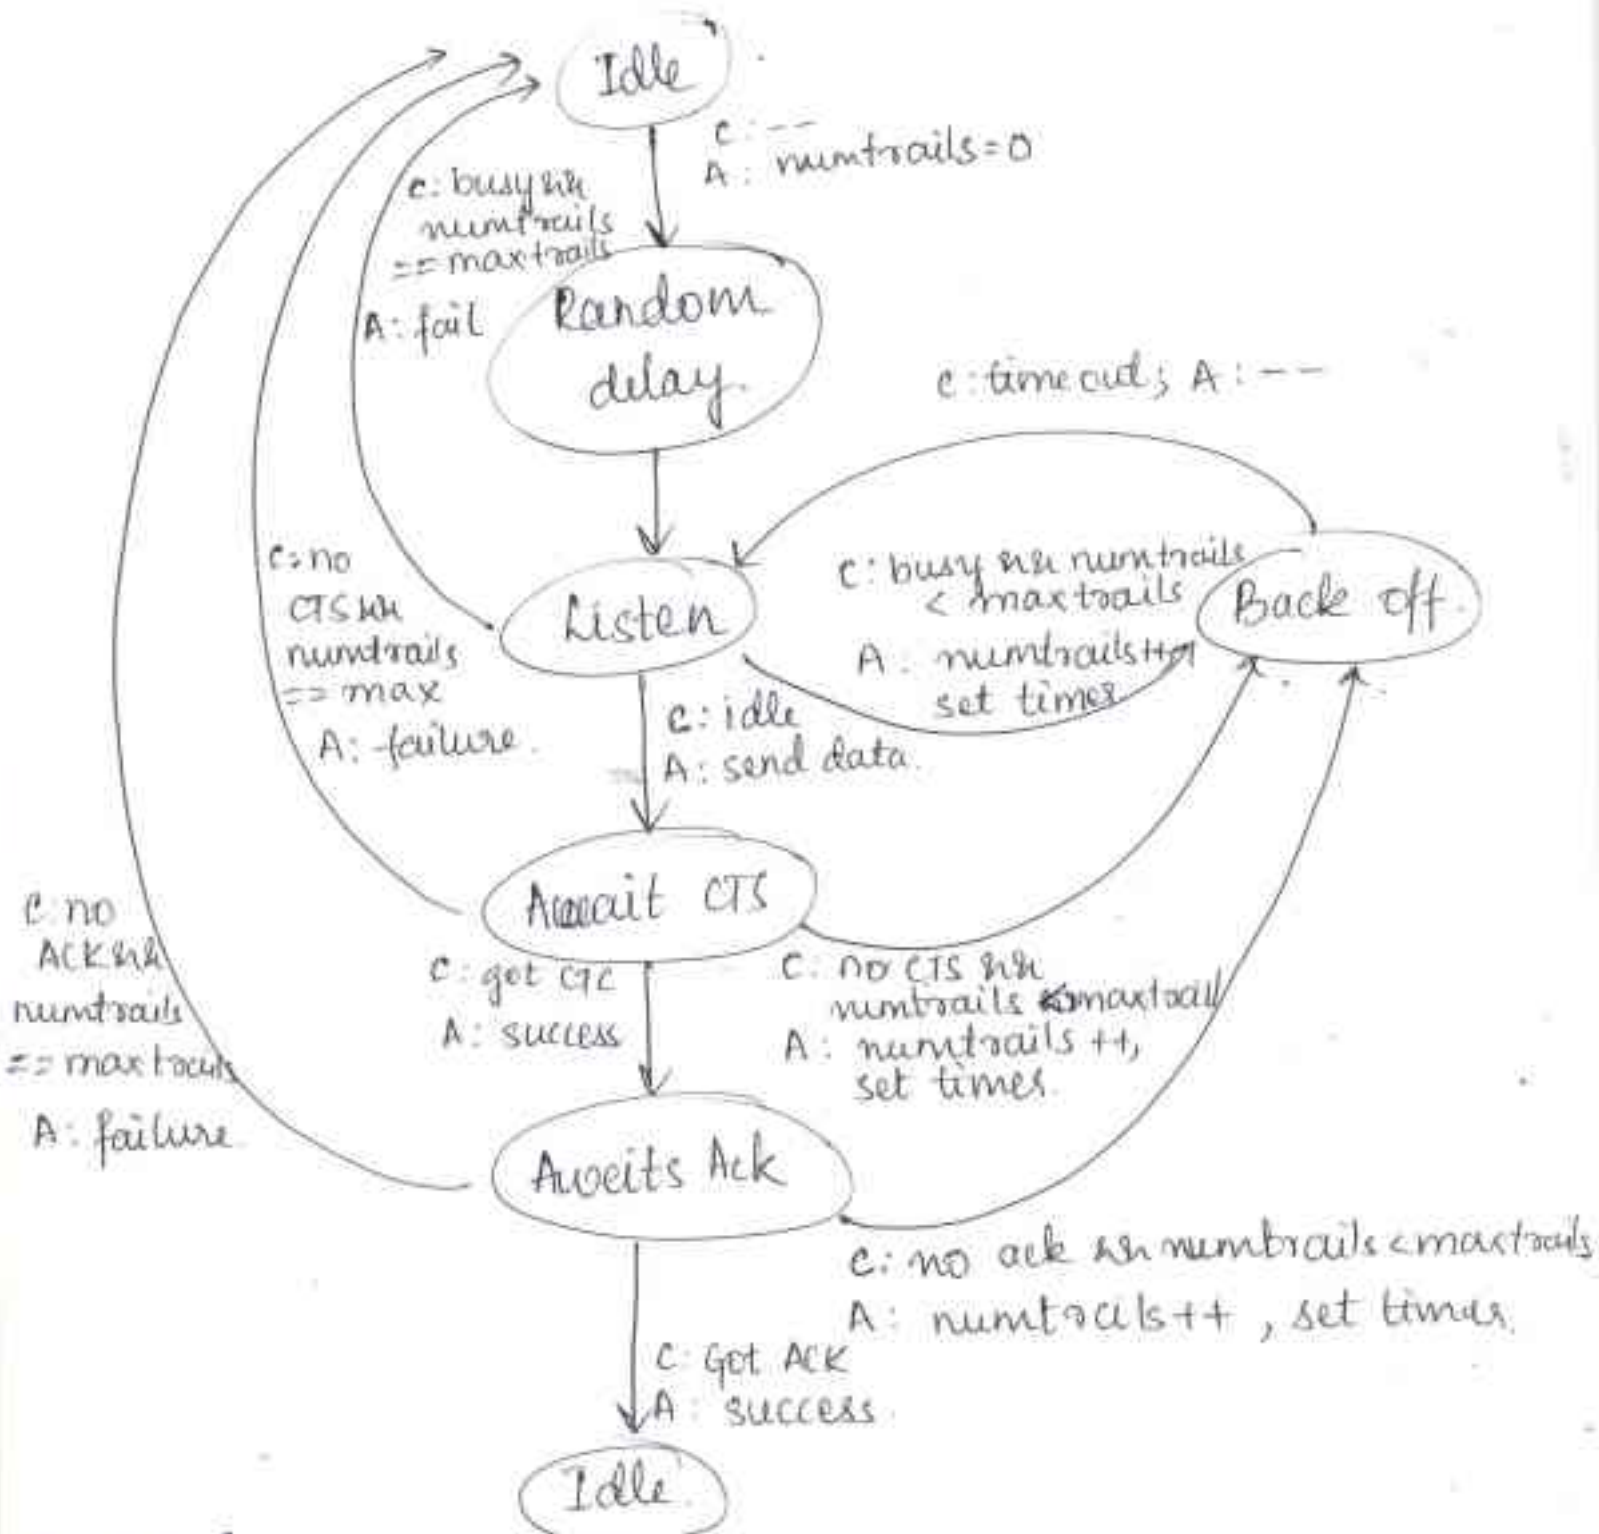 Idle
C: --
A: numtrails=0
C: busy &&
numtrails
== maxtrails
A: fail
Random
delay.
C: timeout; A: --
C: no
CTS &&
numtrails
== max
A: failure.
Listen
C: busy && numtrails
< maxtrails
A: numtrails++
set times
Back off.
C: idle
A: send data.
Await CTS
C: no
ACK &&
numtrails
== maxtrails
A: failure
C: got CTC
A: success
C: no CTS &&
numtrails < maxtrail
A: numtrails ++,
set times.
Aweits Ack
C: no ack && numtrails < maxtrails
A: numtrails++, set times.
C: Got ACK
A: success.
Idle